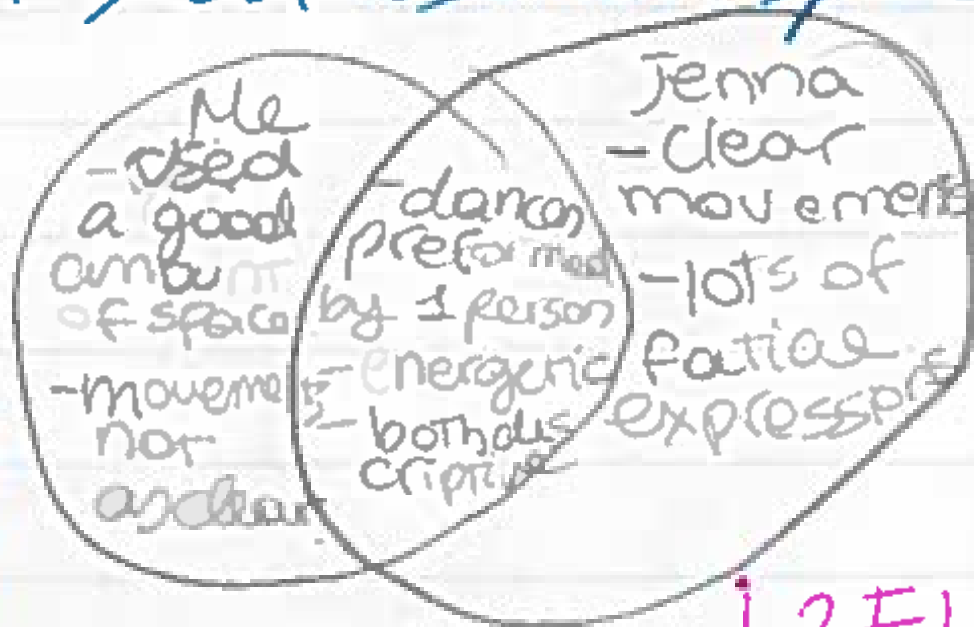 Me
-Used
a good
amount
of space
-movements
not
as clear
-dances
preformed
by 1 person
-energenic
-both dis
criptive
Jenna
-Clear
movements
-lots of
fatial
expressions